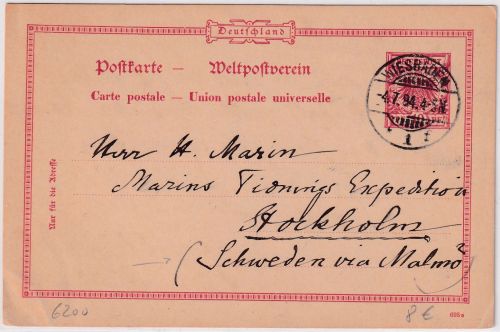 Deutschland
Postkarte — Weltpostverein
Carte postale — Union postale universelle
WIESBADEN
-4.7.94.4-5N
* 1 *
Nur für die Adresse
Herr H. Marin
Marins Tidnings Expedition
Stockholm
(Schweden via Malmö)
6200
8 €